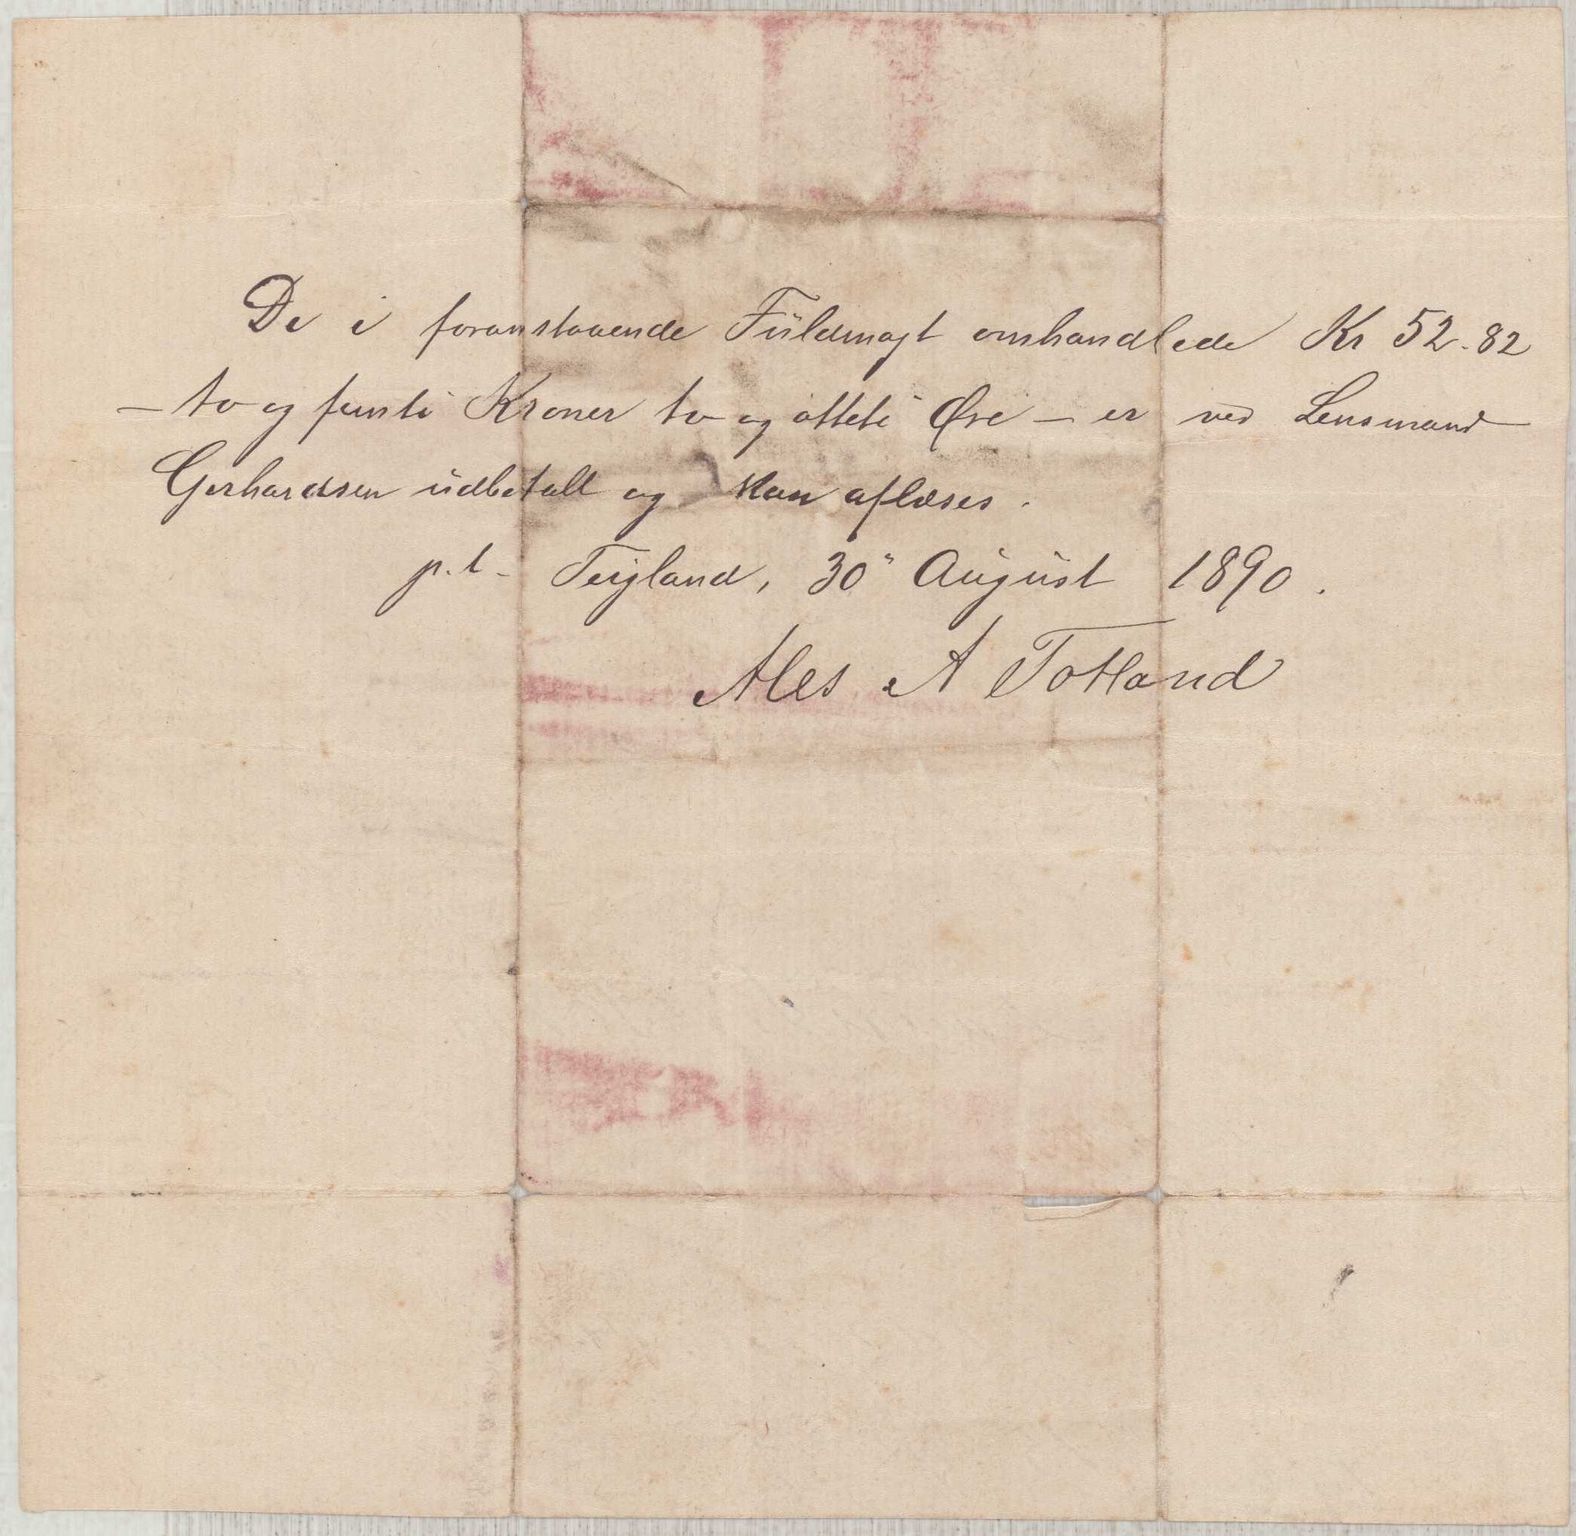 De i foranstaaende Fuldmagt omhandlede Kr 52.82
— to og femti Kroner to og åtteti Øre — er ved Lensmand
Gerhardsen udbetalt og kan aflæses.
p.t. Teigland, 30" August 1890.
A Totland